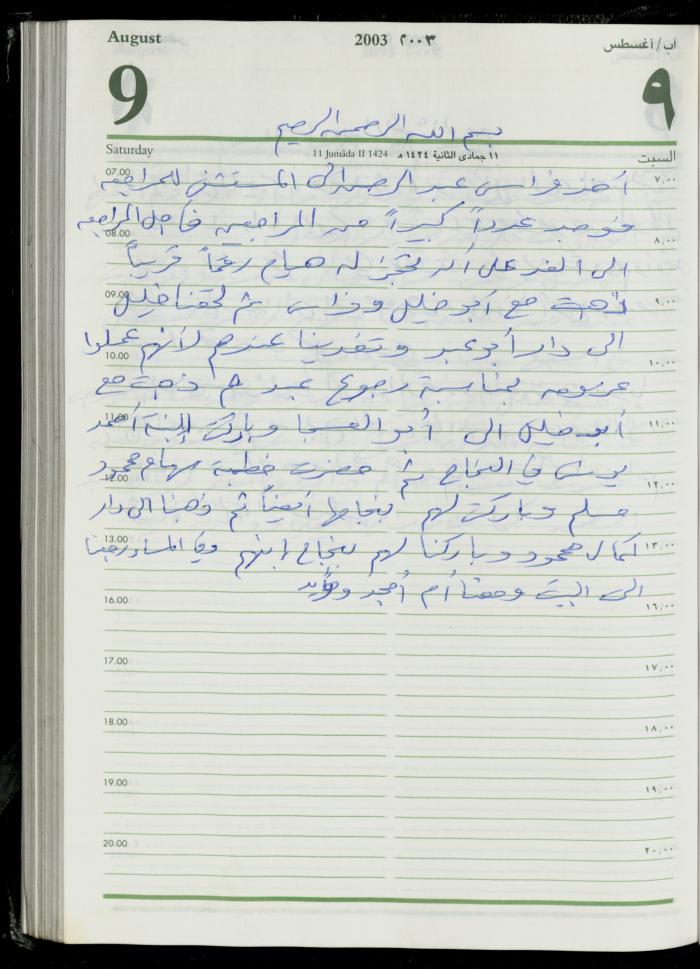 August 2003 ٢٠٠٣ آب/أغسطس
9 ٩
بسم الله الرحمن الرحيم
Saturday 11 Jumâda II 1424 ١١ جمادى الثانية ١٤٢٤ هـ السبت
07.00 أخذ فراس عبد الرحمن الى المستشفى للمراجعه ٧,٠٠
فوجد عدداً كبيراً من المراجعين فأجل المراجعه
08.00 ٨,٠٠
الى الغد على أن تحجز له هيام رقماً قريباً
09.00 ذهبت مع أبو خليل وفراس ثم لحقنا خليل ٩,٠٠
الى دار أبو عبد وتغدينا عندهم لأنهم عملوا
10.00 ١٠,٠٠
عزومه بمناسبة رجوع عبد ثم ذهبت مع
11.00 أبو خليل الى أبو العبد وباركت لإبنة أحمد ١١,٠٠
يونس في النجاح ثم حضرت خطبة سهام محمود
12.00 ١٢,٠٠
مسلم وباركت لهم بنجاحها أيضاً ثم ذهبنا الى دار
13.00 كمال محمود وباركنا لهم بنجاح إبنهم وفي المساء رجعنا ١٣,٠٠
الى البيت وجتنا أم أمجد ومؤيد
16.00 ١٦,٠٠
17.00 ١٧,٠٠
18.00 ١٨,٠٠
19.00 ١٩,٠٠
20.00 ٢٠,٠٠